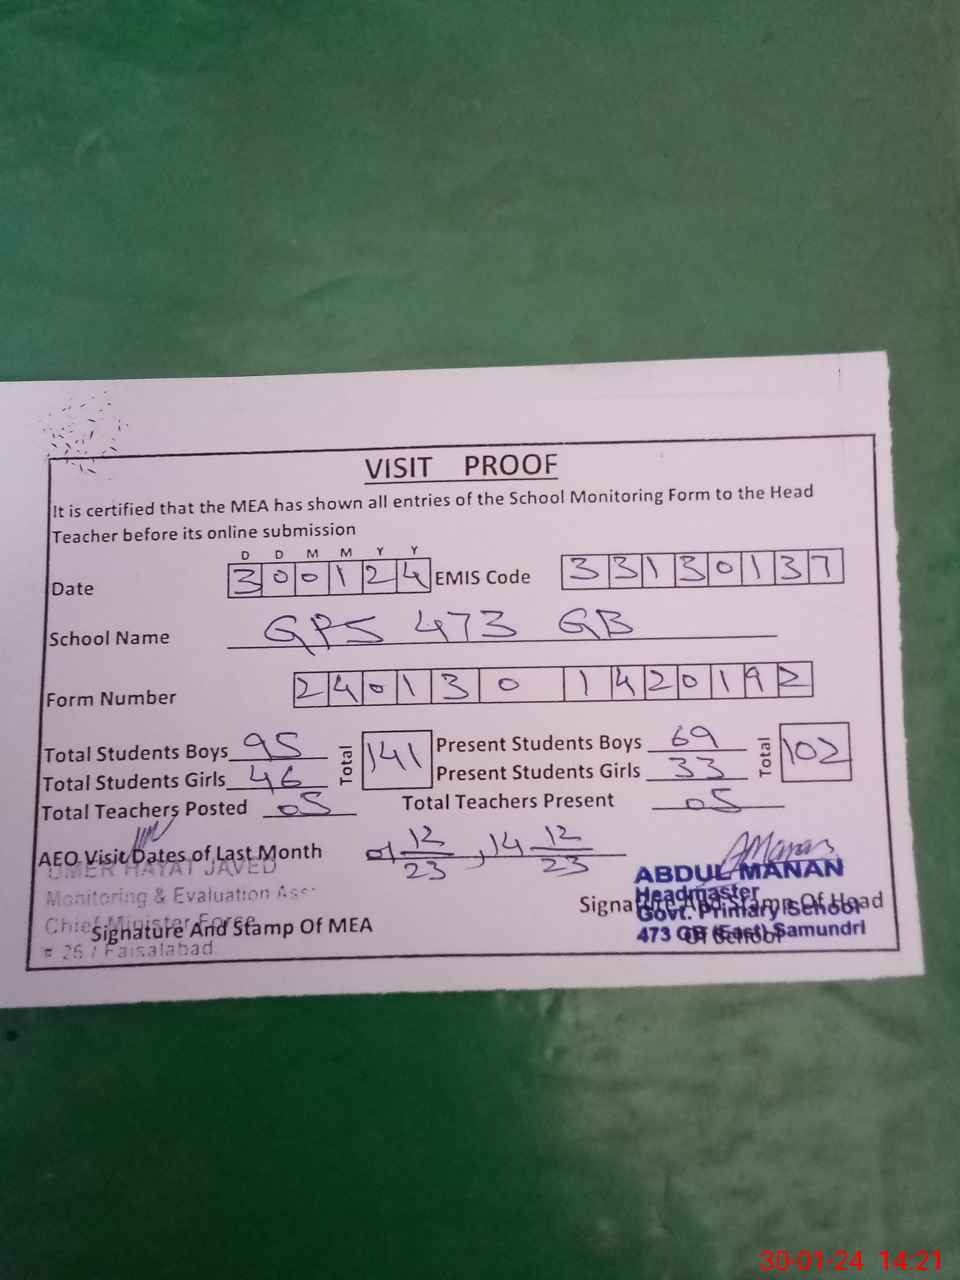 VISIT PROOF
It is certified that the MEA has shown all entries of the School Monitoring Form to the Head
Teacher before its online submission
D D M M Y Y
Date 300124 EMIS Code 33130137
School Name GPS 473 GB
Form Number 2401301420192
Total Students Boys 95 Total 141 Present Students Boys 69 Total 102
Total Students Girls 46 Present Students Girls 33
Total Teachers Posted 05 Total Teachers Present 05
AEO Visit Dates of Last Month 01 12/23, 14 12/23
UMER HAYAT JAVED
Monitoring & Evaluation Ass:
Chief Minister Force
# 26 / Faisalabad.
Signature And Stamp Of MEA
AManan
ABDUL MANAN
Headmaster
Govt. Primary School
473 GB (East) Samundri
Signature And Stamp Of Head
Of School
30-01-24 14:21